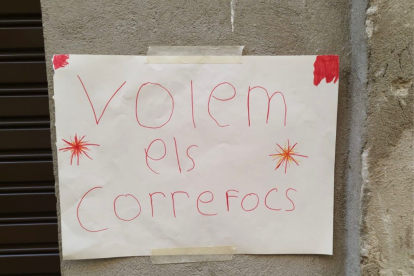 Volem
els
Correfocs